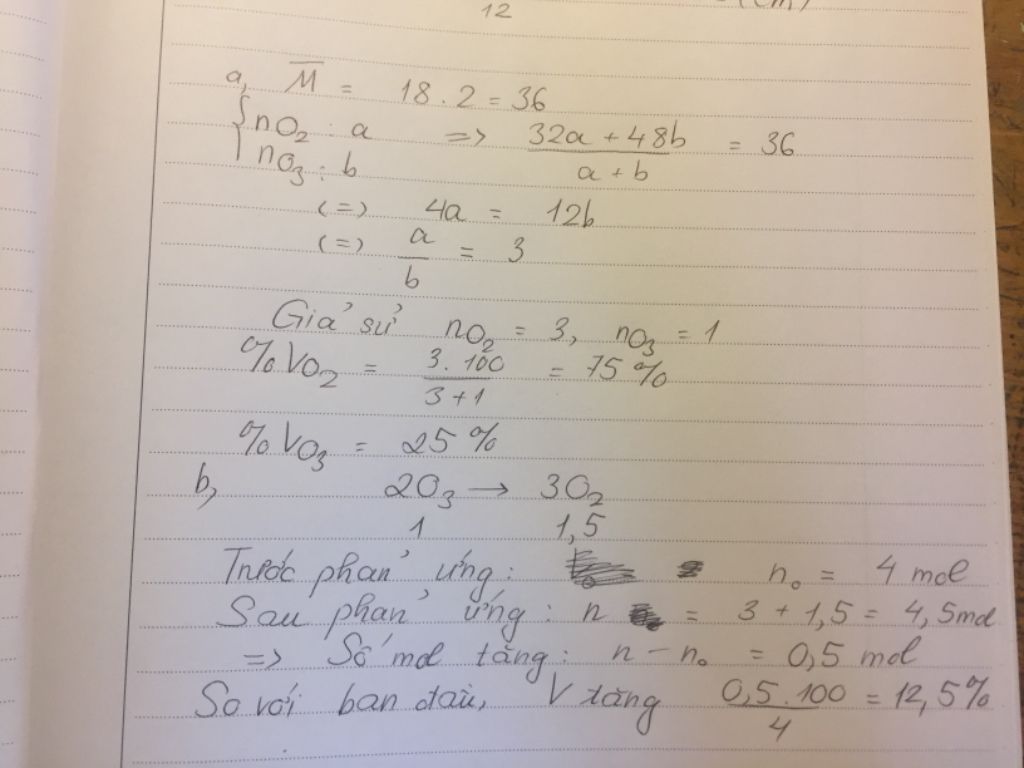 12
(cm)
a, M̅ = 18 . 2 = 36
{ nO₂ : a => (32a + 48b)/(a + b) = 36
nO₃ : b
(=) 4a = 12b
(=) a/b = 3
Giả sử nO₂ = 3, nO₃ = 1
%VO₂ = (3.100)/(3+1) = 75%
%VO₃ = 25%
b, 2O₃ → 3O₂
1 1,5
Trước phản ứng: n₀ = 4 mol
Sau phản ứng: n = 3 + 1,5 = 4,5mol
=> Số mol tăng: n - n₀ = 0,5 mol
So với ban đầu, V tăng (0,5.100)/4 = 12,5%